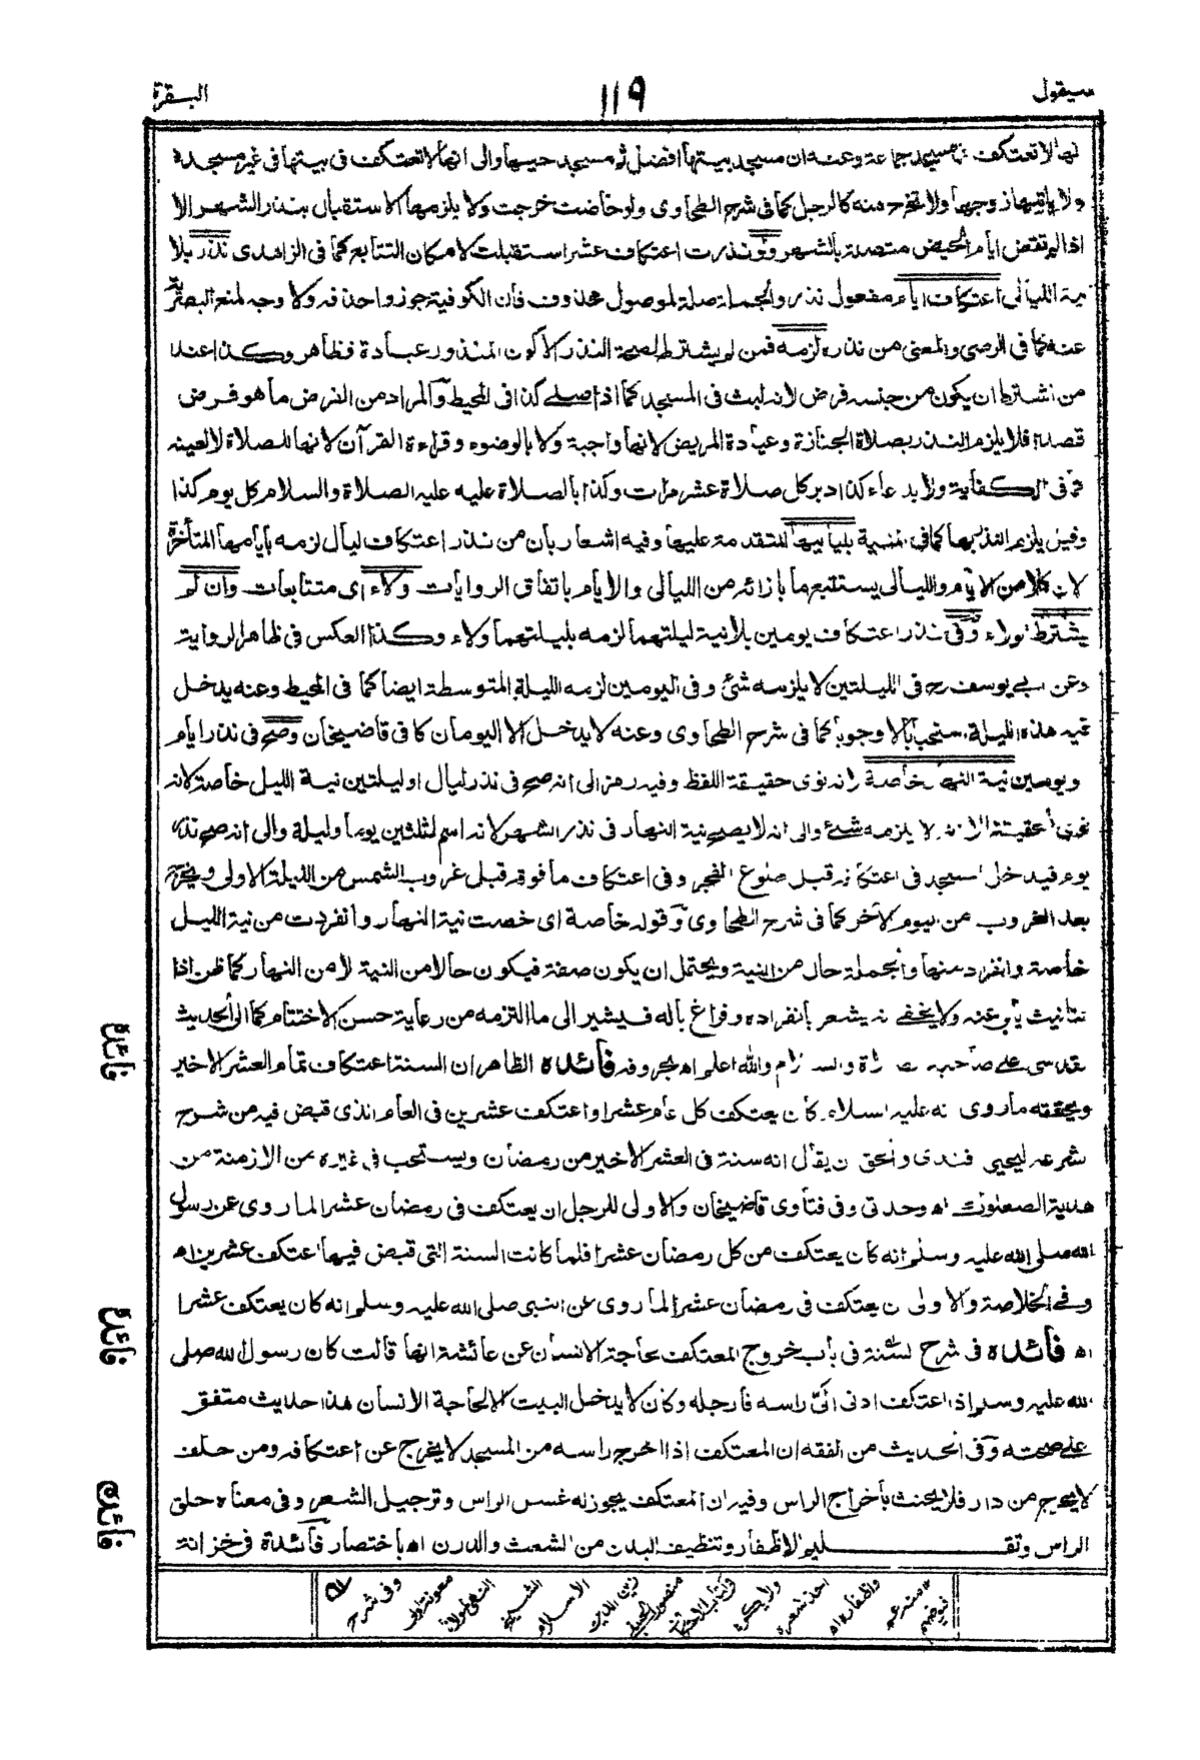 سيقول
١١٩
البقرة
لها لا تعتكف في مسجد جماعة وعنه ان مسجد بيتها افضل ثم مسجد حيها والى انها لا تعتكف في بيتها في غير مسجده
ولا ياتيها زوجها ولا تخرج منه كالرجل كما في شرح الطحاوى ولو حاضت خرجت ولا يلزمها الاستقبال بنذر الشهر الا
اذا لم تقض ايام الحيض متصلة بالشهر ولو نذرت اعتكاف عشر استقبلت لامكان التتابع كما في الزاهدى نذر بلا
نية الليالى اعتكاف ايام مفعول نذر والجملة صلة لموصول محذوف فان الكوفية جوزوا حذفه ولا وجه لمنع البصرية
عنه كما في الرضى والمعنى من نذره لزمه فمن لم يشترط لصحة النذر الا كون المنذور عبادة فظاهر وكذا عند
من اشترط ان يكون من جنسه فرض لانه لبث في المسجد كما اذا صلى كذا في المحيط والمراد من الفرض ما هو فرض
قصدا فلا يلزم النذر بصلاة الجنازة وعيادة المريض لانها واجبة ولا بالوضوء وقراءة القرآن لانها للصلاة لا لعينه
كما في الكفاية ولا بدعاء كذا دبر كل صلاة عشر مرات وكذا بالصلاة عليه عليه الصلاة والسلام كل يوم كذا
وقيل يلزم النذر بها كما في المنية بلياليها المتقدمة عليها وفيه اشعار بان من نذر اعتكاف ليال لزمه بايامها المتأخرة
لان كلا من الايام والليالى يستتبع ما بازائه من الليالى والايام باتفاق الروايات ولاء اى متتابعات وان لم
يشترط الولاء وفى نذر اعتكاف يومين بلا نية ليلتهما لزمه بليلتهما ولاء وكذا العكس في ظاهر الرواية
وعن ابي يوسف رح في الليلتين لا يلزمه شئ وفى اليومين لزمه الليلة المتوسطة ايضا كما في المحيط وعنه يدخل
فيه هذه الليلة استحبابا لا وجوبا كما في شرح الطحاوى وعنه لا يدخل الا اليومان كما في قاضيخان وصح في نذر ايام
ويومين نية النهار خاصة لانه نوى حقيقة اللفظ وفيه رمز الى انه صح في نذر ليال او ليلتين نية الليل خاصة لانه
نوى الحقيقة الا انه لا يلزمه شئ والى انه لا يصح نية النهار في نذر الشهر لانه اسم لثلثين يوما وليلة والى انه صح نذر
يوم فيدخل المسجد في اعتكافه قبل طلوع الفجر وفى اعتكاف ما فوقه قبل غروب الشمس من الليلة الاولى ويخرج
بعد الغروب من اليوم الآخر كما في شرح الطحاوى وقوله خاصة اى خصت نية النهار وانفردت من نية الليل
خاصة وانفردت منها والجملة حال من النية ويحتمل ان يكون صفة فيكون حالا من النية لا من النهار كما ظن اذا
التانيث يأبى عنه ولا يخفى انه يشعر بانفراده وفراغ باله فيشير الى ما التزمه من رعاية حسن الاختتام كما الى الحديث
القدسى على صاحبه الصلاة والسلام والله اعلم اه بحروفه فائدة الظاهر ان السنة اعتكاف تمام العشر الاخير
ويحققه ما روى انه عليه السلام كان يعتكف كل عام عشرا واعتكف عشرين في العام الذى قبض فيه من شرح
شرعه ليحيى فندى والحق ان يقال انه سنة في العشر الاخير من رمضان ويستحب في غيره من الازمنة من
هدية الصعلوك اه وحدتى وفى فتاوى قاضيخان والاولى للرجل ان يعتكف في رمضان عشرا لما روى عن رسول
الله صلى الله عليه وسلم انه كان يعتكف من كل رمضان عشرا فلما كانت السنة التى قبض فيها اعتكف عشرين اه
وفى الخلاصة والاولى ان يعتكف في رمضان عشرا لما روى عن النبى صلى الله عليه وسلم انه كان يعتكف عشرا
اه فائدة في شرح السنة في باب خروج المعتكف لحاجة الانسان عن عائشة انها قالت كان رسول الله صلى
الله عليه وسلم اذا اعتكف ادنى الىّ راسه فارجله وكان لا يدخل البيت الا لحاجة الانسان هذا حديث متفق
على صحته وفى الحديث من الفقه ان المعتكف اذا اخرج راسه من المسجد لا يخرج عن اعتكافه ومن حلف
لا يخرج من دار فلا يحنث باخراج الراس وفيه ان المعتكف يجوز له غسل الراس وترجيل الشعر وفى معناه حلق
الراس وتقليم الاظفار وتنظيف البدن من الشعث والدرن اه باختصار فائدة في خزانة
فائدة
فائدة
فائدة